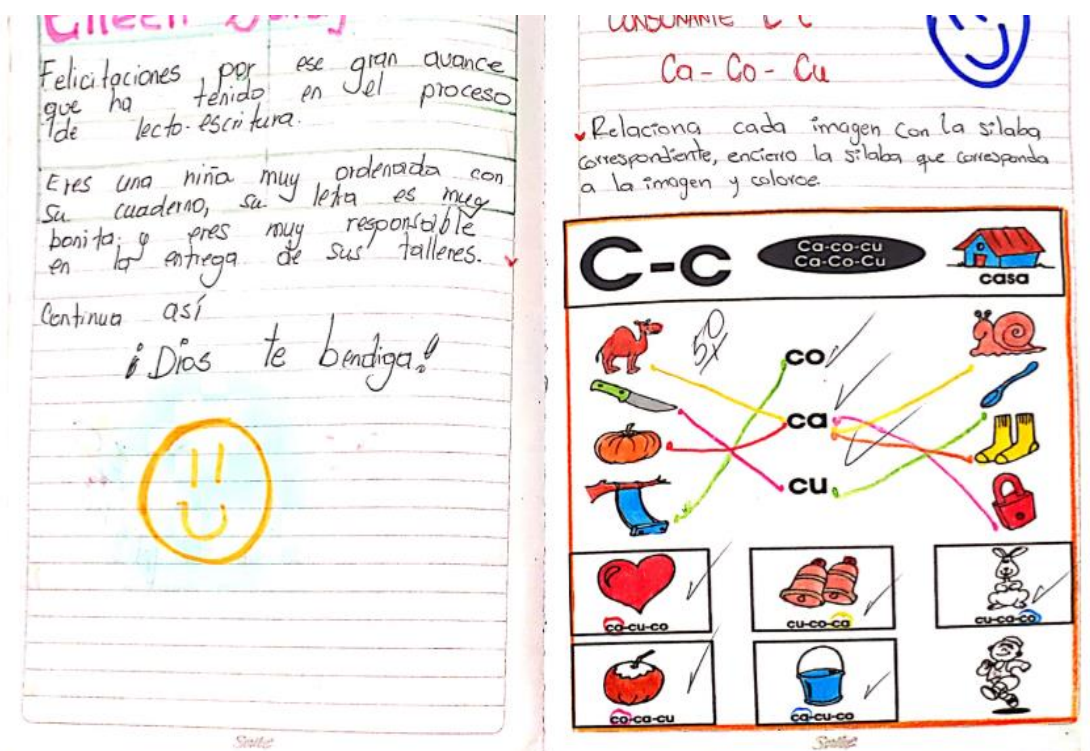 Eileen
Felicitaciones, por ese gran avance
que ha tenido en el proceso
de lecto-escritura.
Eres una niña muy ordenada con
su cuaderno, su letra es muy
bonita, y eres muy responsable
en la entrega de sus talleres.
Continua así
¡Dios te bendiga!
CONSONANTE C c
Ca - Co - Cu
Relaciona cada imagen con la silaba
correspondiente, encierro la silaba que corresponda
a la imagen y coloroe.
C-c
Ca-co-cu
Ca-Co-Cu
casa
50
co
ca
cu
ca-cu-co
cu-co-ca
cu-ca-co
co-ca-cu
ca-cu-co